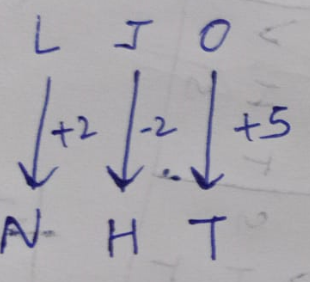 L J O
+2 -2 +5
N H T